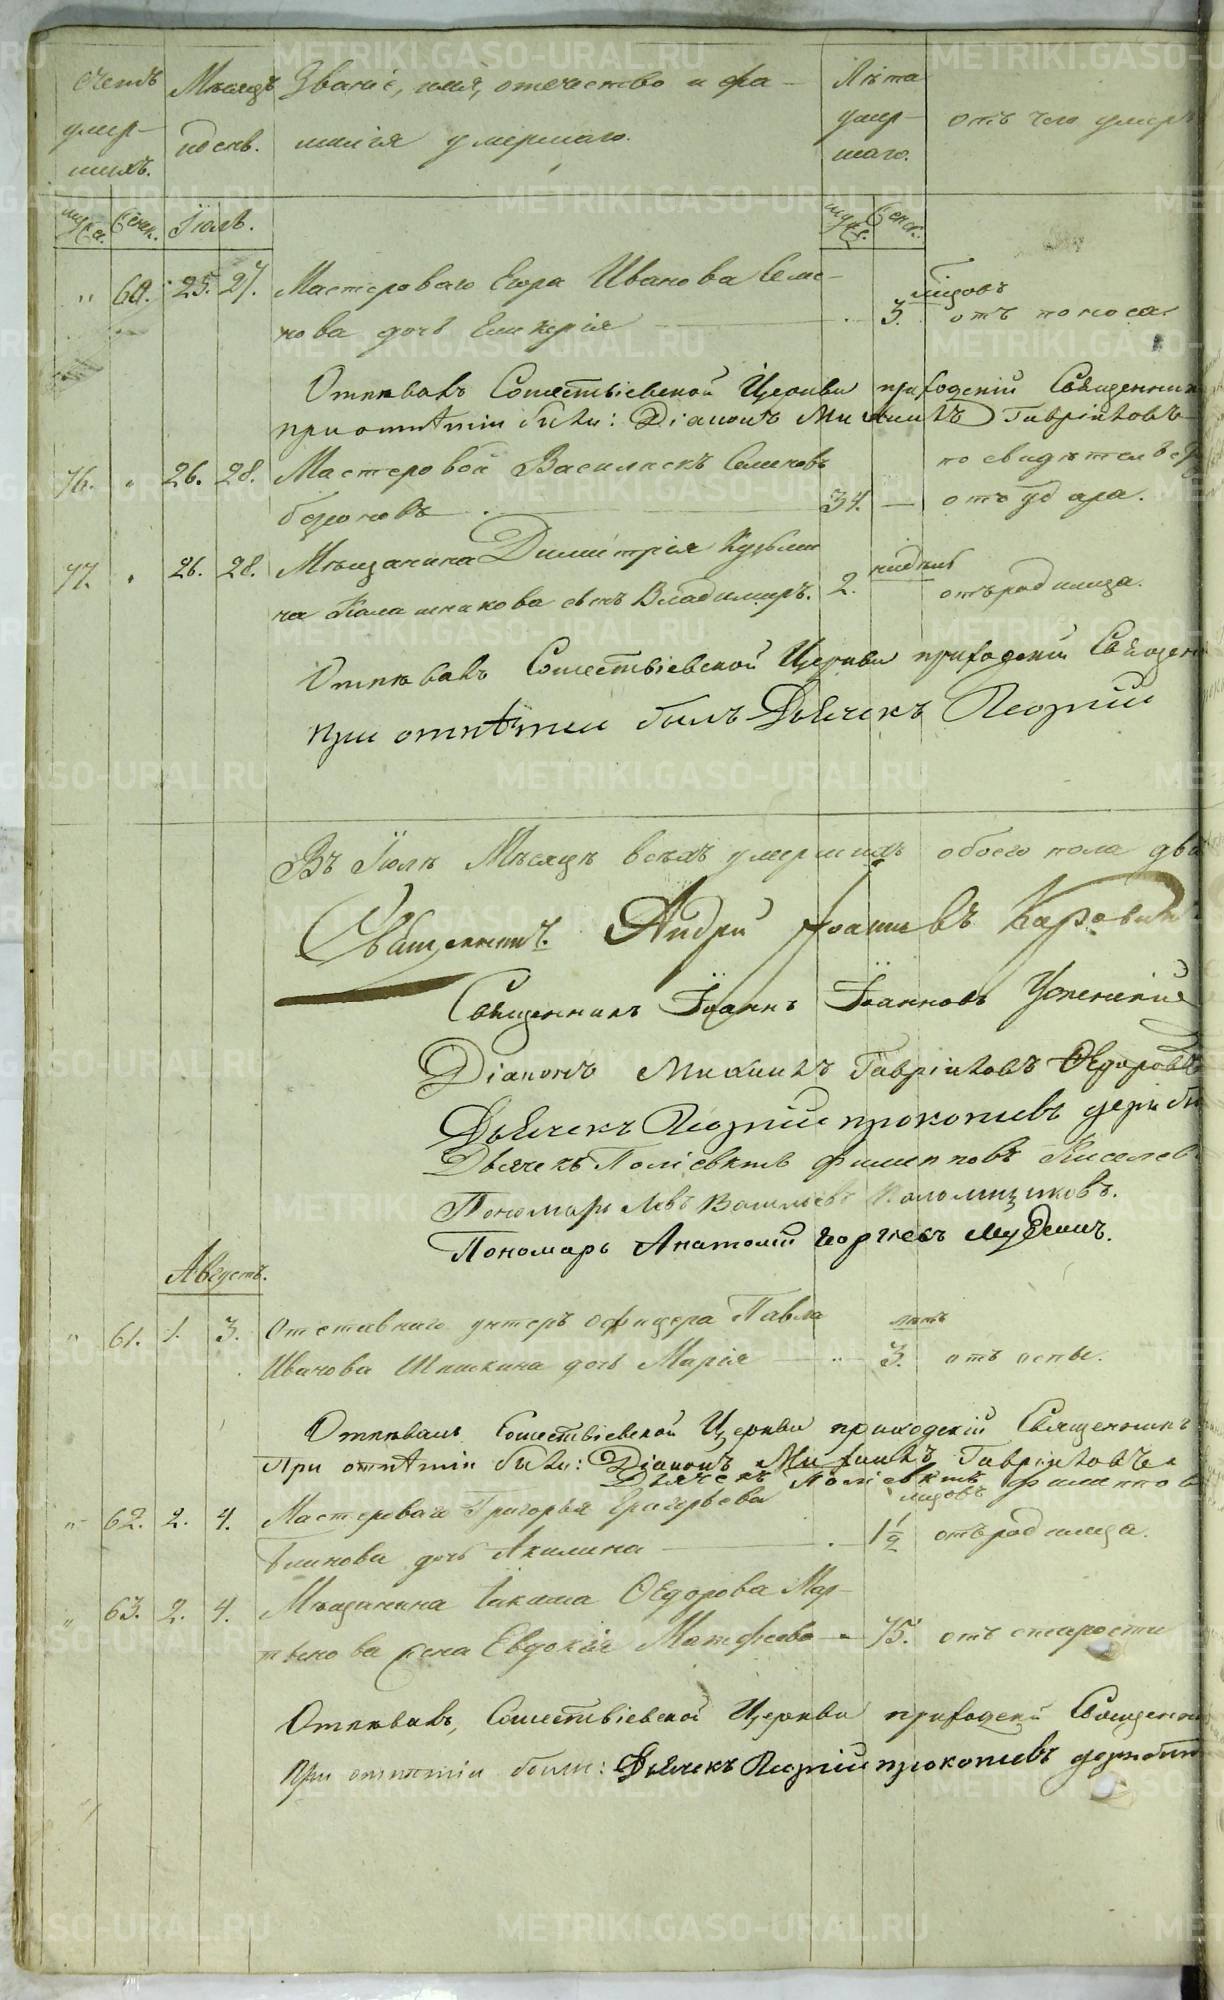 Счетъ умер-шихъ. Мѣсяцъ и день. Званіе, имя, отечество и фа-милія умершаго. Лѣта умер-шаго. отъ чего умеръ
муж. женск. Іюль. муж. женск.
" 60. 25. 27. Мастероваго Егора Иванова Семе-
нова дочь Гликерія 3. отъ поноса.
Отпѣвалъ Сошествіевской Церкви приходскій Священник
при отпѣтіи были: Діаконъ Михаилъ Гавріиловъ
76. " 26. 28. Мастеровой Василискъ Семеновъ по свидѣтельств
34. — отъ удара.
77. " 26. 28. Мѣщанина Димитрія Кузьми
на Калашникова сынъ Владимиръ. 2. недѣль отъ родимца.
Отпѣвалъ Сошествіевской Церкви приходскій Священ
при отпѣтіи былъ Дьячекъ Георгій
Въ Іюлѣ Мѣсяцѣ всѣхъ умершихъ обоего пола два
Священникъ Андрей Іоанновъ Каро
Священникъ Іоаннъ Іоанновъ Успенскій
Діаконъ Михаилъ Гавріиловъ Ѳедоровъ
Дьячекъ Георгій Прокопіевъ
Дьячекъ Поліевктъ Филипповъ Киселев
Пономарь Левъ Васильевъ Коломщиковъ.
Пономарь Анатолій Георгіевъ
Августъ.
" 61. 1. 3. Отставнаго унтеръ офицера Павла лѣтъ
Иванова Шишкина дочь Марія 3. отъ оспы.
Отпѣвалъ Сошествіевской Церкви приходскій Священникъ
При отпѣтіи были: Діаконъ Михаилъ Гавріиловъ и
Дьячекъ Поліевктъ Филиппов
" 62. 2. 4. Мастероваго Григорья Григорьева
Блинова дочь Акилина 1½ отъ родимца.
" 63. 2. 4. Мѣщанина Іакима Ѳедорова Мар-
тынова жена Евдокія Матфеева 75. отъ старости
Отпѣвалъ Сошествіевской Церкви приходскій Священни
При отпѣтіи были: Дьячекъ Георгій Прокопіевъ
METRIKI.GASO-URAL.RU